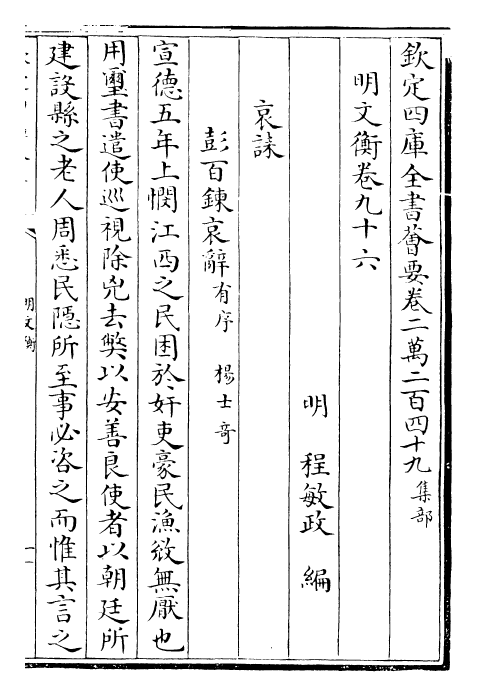 欽定四庫全書薈要卷二萬二百四十九集部
明文衡卷九十六
明 程敏政 編
哀誄
彭百鍊哀辭有序 楊士奇
宣德五年上憫江西之民困於奸吏豪民漁斂無厭也
用璽書遣使巡視除兇去弊以安善良使者以朝廷所
建設縣之老人周悉民隱所至事必咨之而惟其言之
明文衡
一